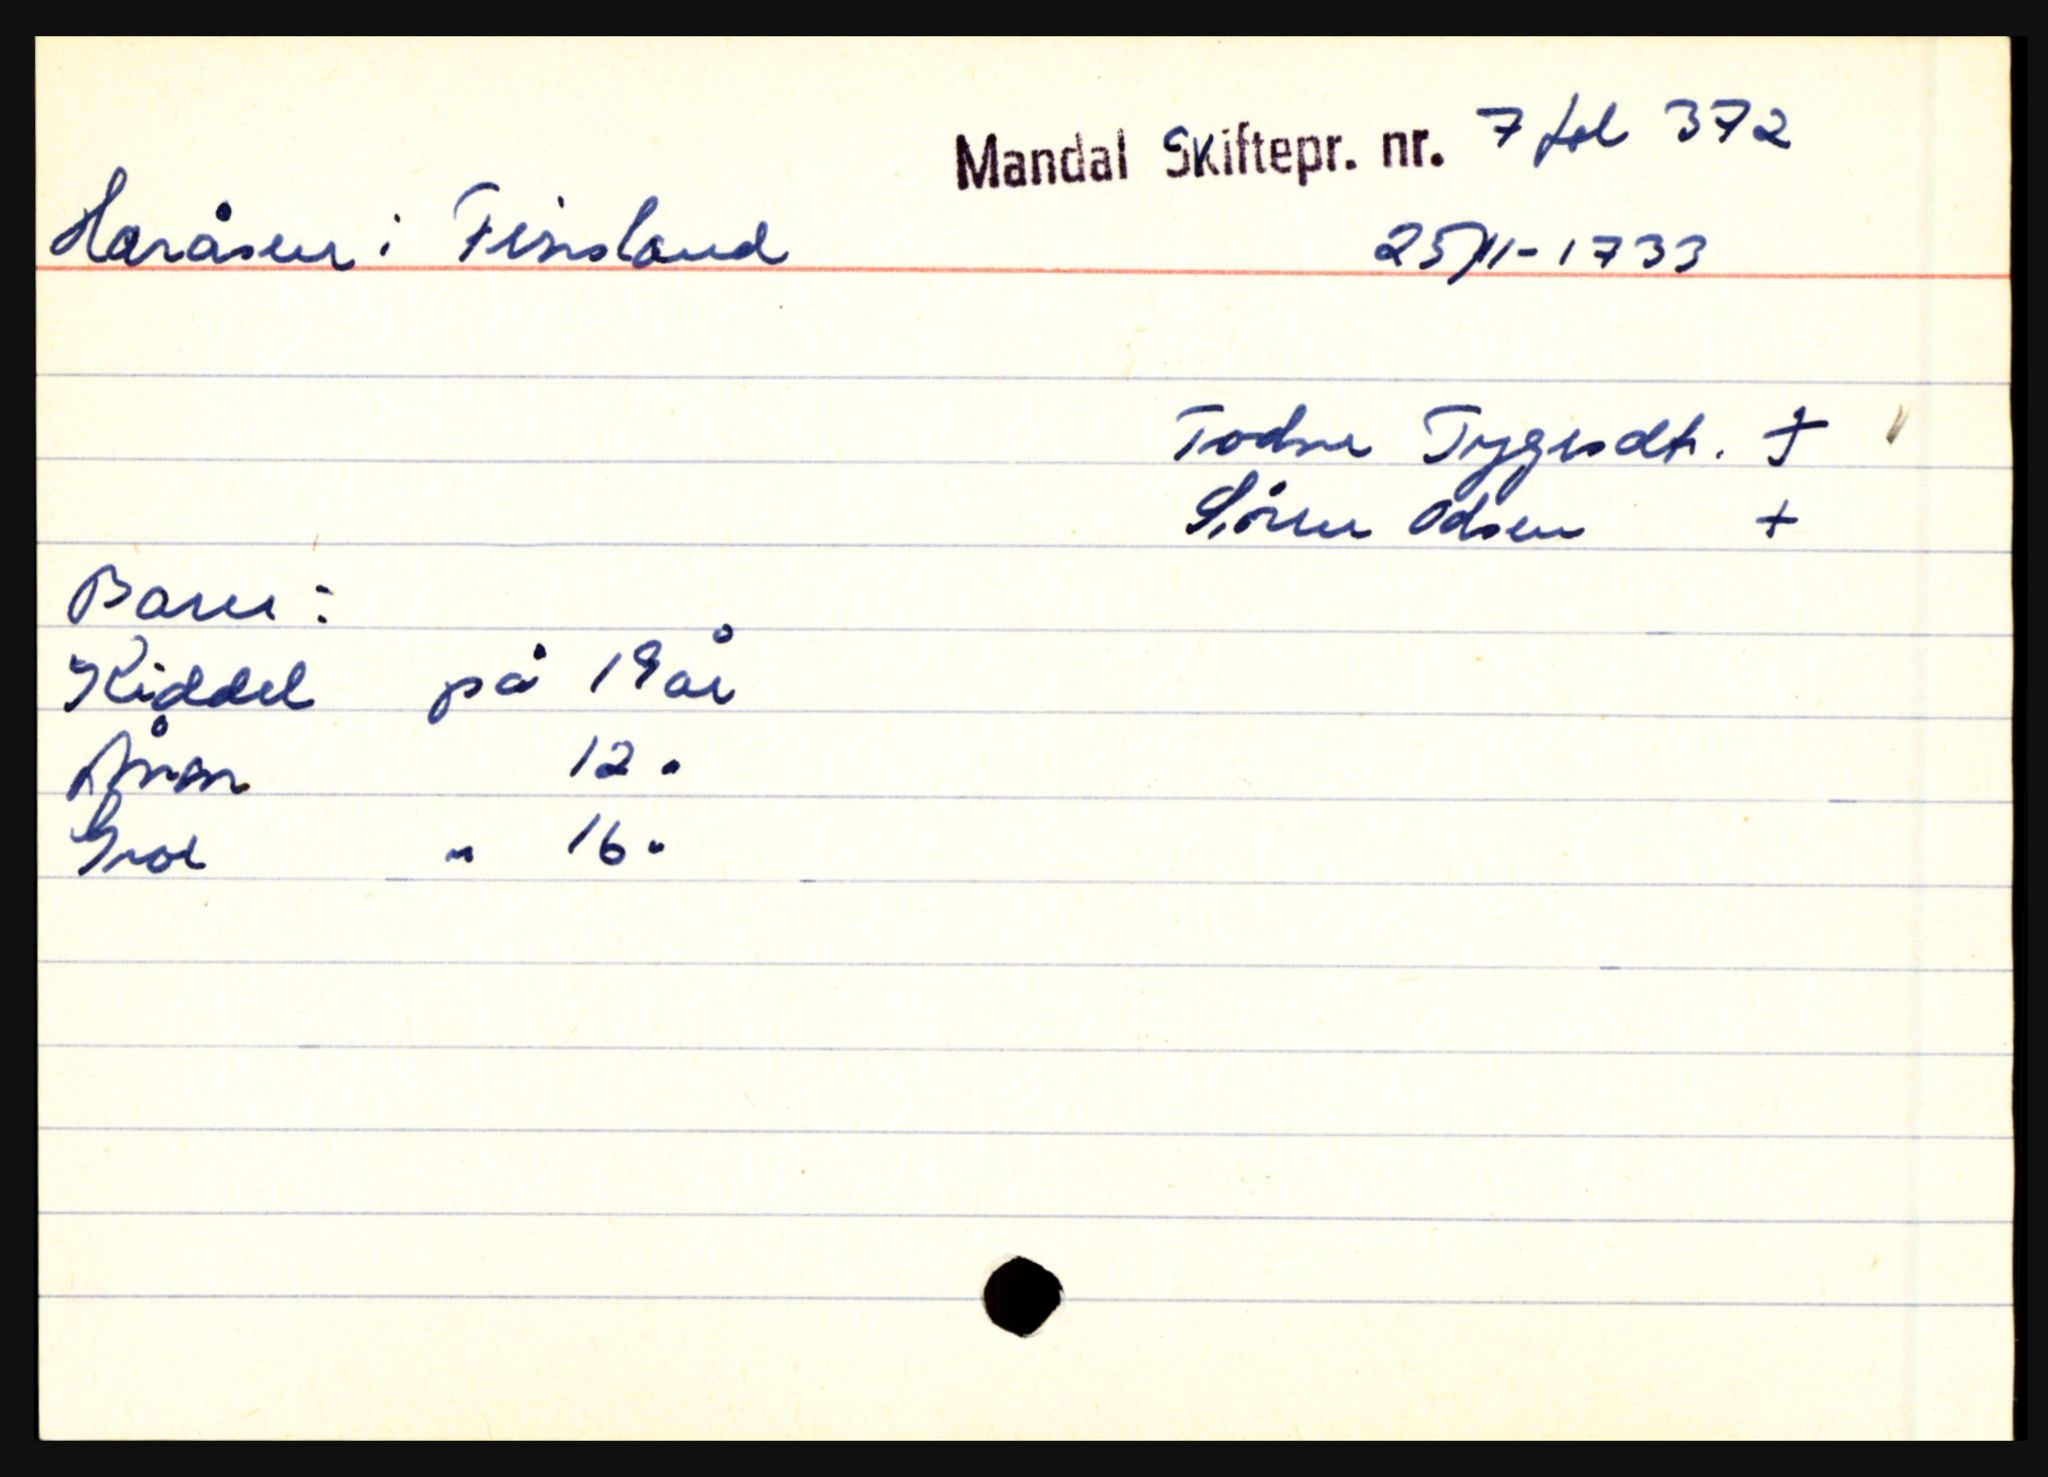 Mandal Skiftepr. nr. 7 fol 372
Haråsen i Finsland 25/11-1733
Todne Tygesdt. +
Sören Odsen +
Barn:
Kiddel på 19 år
Ånon 12 "
Groe " 16 "